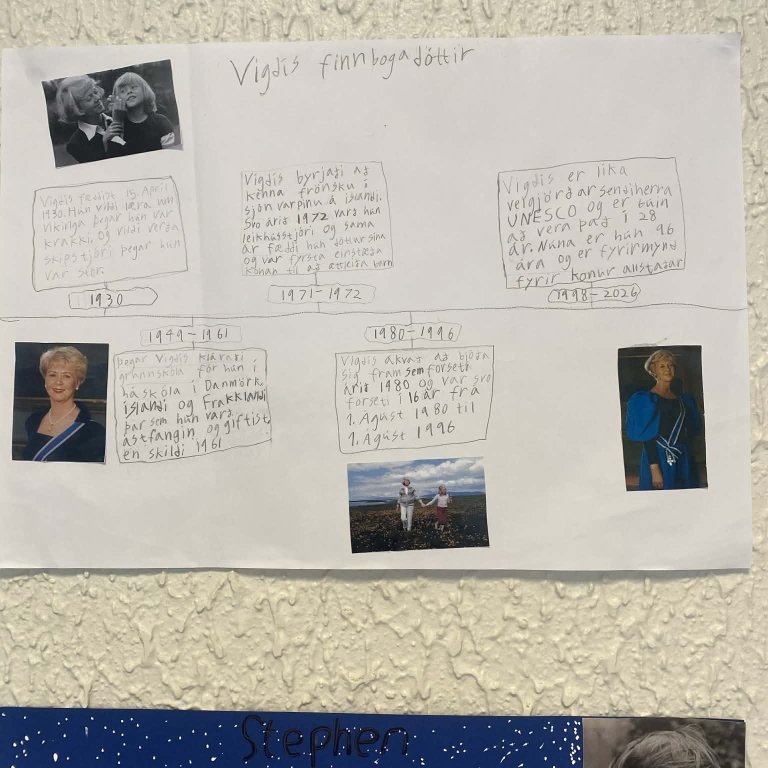 Vigdís finnbogadóttir
Vigdís fæddist 15. April
1930. Hún vildi læra um
vikinga þegar hún var
krakki, og vildi verða
skipstjóri þegar hún
var stór.
1930
Vigdís byrjaði að
kenna frönsku í
sjónvarpinu á íslandi.
Svo árið 1972 varð hún
leikhússtjóri og sama
ár fæddi hún dóttur sína
og var fyrsta einstæða
konan til að ættleiða barn
1971-1972
Vigdís er líka
velgjörðarsendiherra
UNESCO og er búin
að vera það í 28
ár. Núna er hún 96
ára og er fyrirmynd
fyrir konur allstaðar
1998-2026
1949-1961
þegar Vigdís kláraði
grunnskóla fór hún í
háskóla í Danmörk,
íslandi og Frakklandi
þar sem hún varð
ástfangin og giftist,
en skildi 1961
1980-1996
Vigdís ákvað að bjóða
sig fram sem forseti
árið 1980 og var svo
forseti í 16 ár frá
1. Ágúst 1980 til
1. Ágúst 1996
Stephen